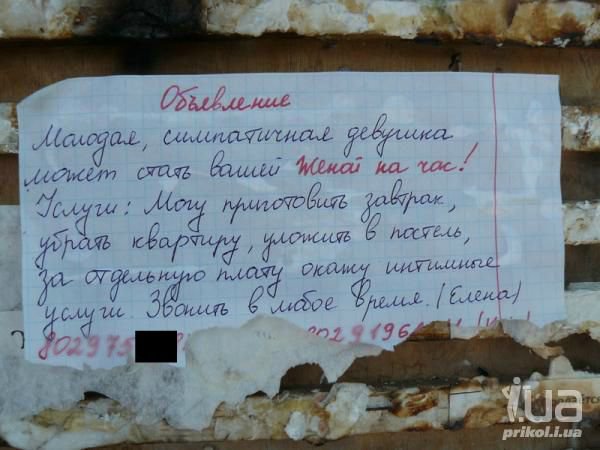 Объявление
Молодая, симпатичная девушка
может стать вашей Женой на час!
Услуги: Могу приготовить завтрак,
убрать квартиру, уложить в постель,
за отдельную плату окажу интимные
услуги. Звонить в любое время. (Елена)
802975
8029196
i.ua
prikol.i.ua